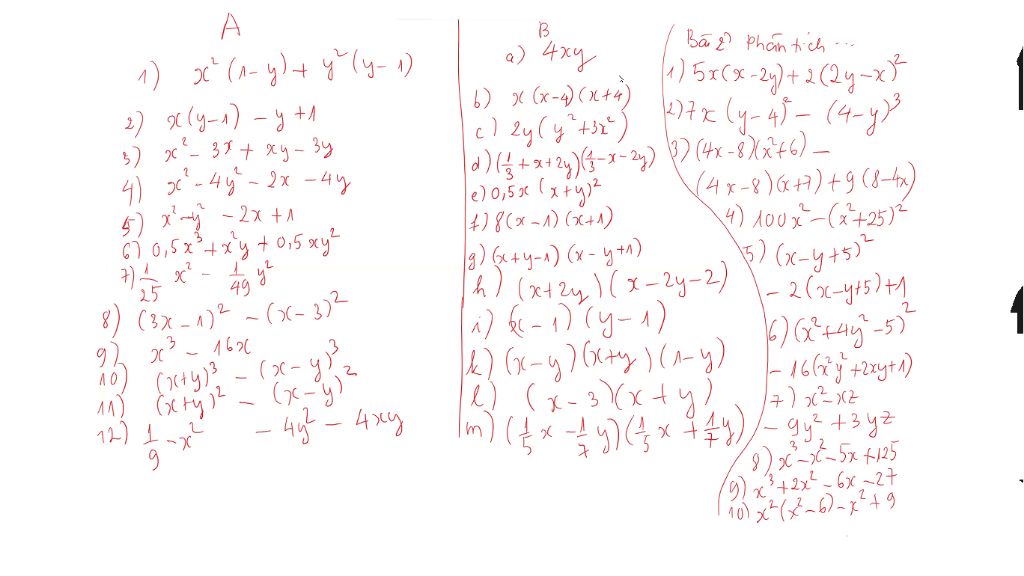 A
1) x² (1 - y) + y² (y - 1)
2) x(y - 1) - y + 1
3) x² - 3x + xy - 3y
4) x² - 4y² - 2x - 4y
5) x² - y² - 2x + 1
6) 0,5x³ + x²y + 0,5xy²
7) 1/25 x² - 1/49 y²
8) (3x - 1)² - (x - 3)²
9) x³ - 16x
10) (x+y)³ - (x - y)³
11) (x+y)² - (x - y)²
12) 1/9 - x² - 4y² - 4xy
B
a) 4xy
b) x(x-4)(x+4)
c) 2y(y² + 3x²)
d) (1/3 + x + 2y)(1/3 - x - 2y)
e) 0,5x (x + y)²
f) 8(x - 1)(x + 1)
g) (x + y - 1)(x - y + 1)
h) (x + 2y)(x - 2y - 2)
i) (x - 1)(y - 1)
k) (x - y)(x + y)(1 - y)
l) (x - 3)(x + y)
m) (1/5 x - 1/7 y)(1/5 x + 1/7 y)
Bài 2) Phân tích ...
1) 5x(x - 2y) + 2(2y - x)²
2) 7x(y - 4)² - (4 - y)³
3) (4x - 8)(x² + 6) -
(4x - 8)(x + 7) + 9(8 - 4x)
4) 100x² - (x² + 25)²
5) (x - y + 5)²
- 2(x - y + 5) + 1
6) (x² + 4y² - 5)²
- 16(x²y² + 2xy + 1)
7) x² - xz
- 9y² + 3yz
8) x³ - x² - 5x + 125
9) x³ + 2x² - 6x - 27
10) x²(x² - 6) - x² + 9